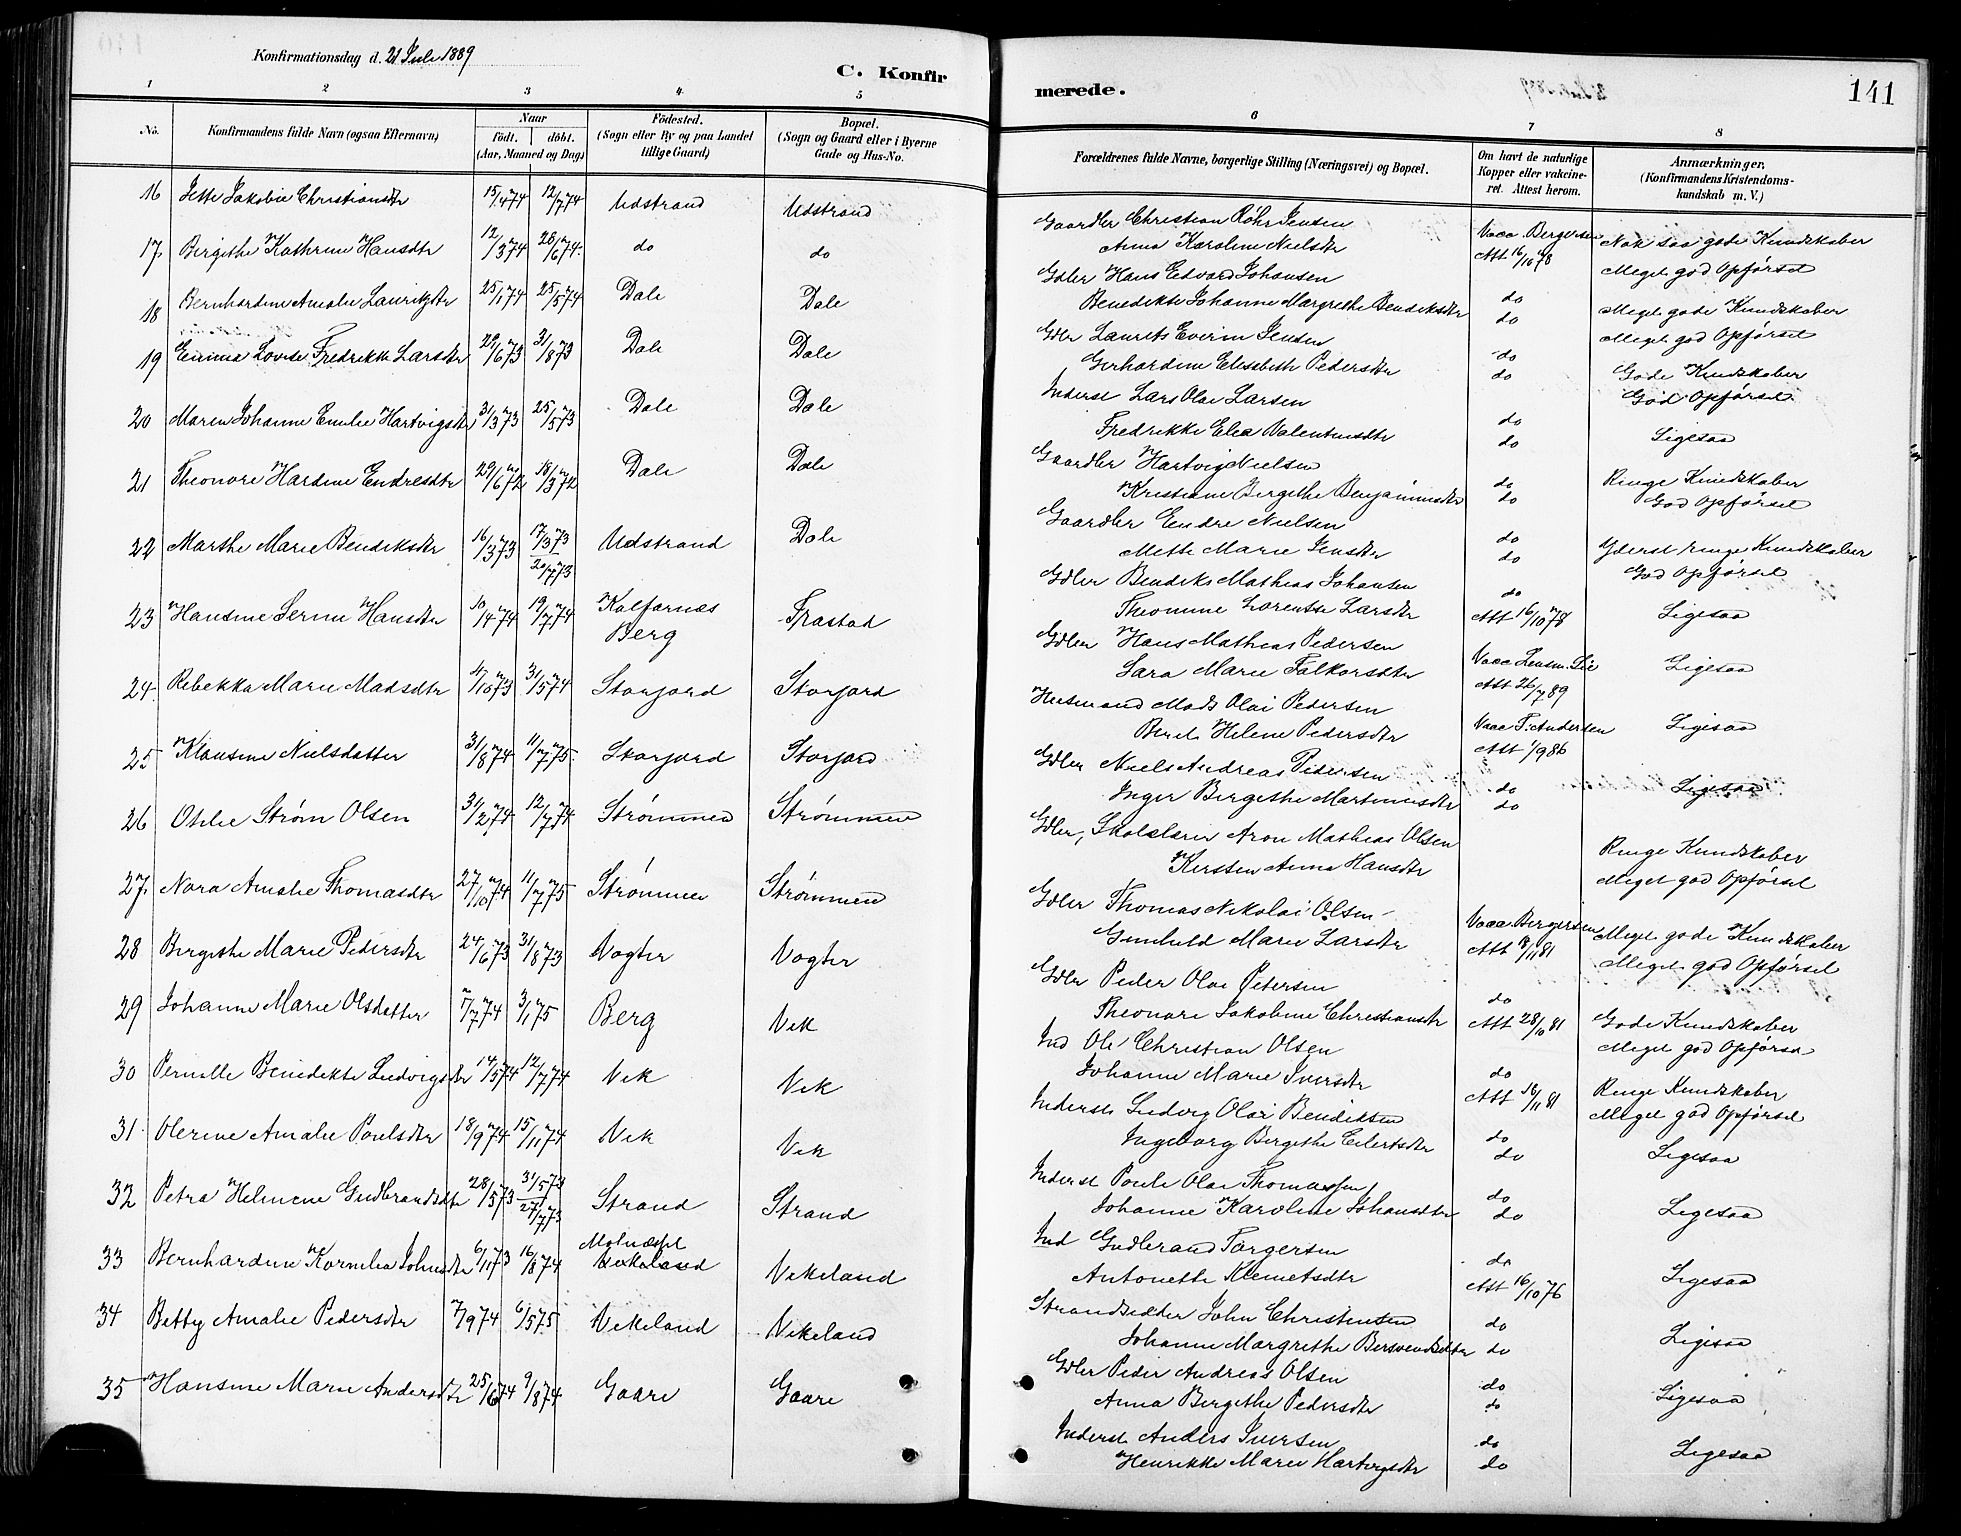 Konfirmationsdag d. 21 Juli 1889
C. Konfir
1
2
3
4
5
No.
Konfirmandens fulde Navn (ogsaa Efternavn)
Naar
födt. döbt.
(Aar, Maaned og Dag)
Födested.
(Sogn eller By og paa Landet
tillige Gaard)
Bopæl.
(Sogn og Gaard eller i Byerne
Gade og Hus-No.
16 Jette Jakobie Christiansdtr 15/4 74 12/7 74 Udstrand Udstrand
17. Bergithe Kathrine Hansdtr 12/3 74 28/6 74. do do
18 Bernhardine Amalie Lauritzdtr 25/1 74 25/5 74 Dale Dale
19 Emma Lovise Fredrikke Larsdtr 29/6 73 31/8 73 Dale Dale
20 Maren Johanne Emilie Hartvigsdtr 31/3 73 25/5 73 Dale Dale
21 Theonore Hardine Endresdtr 29/6 72 18/3 72 Dale Dale
22 Marthe Marie Bendiksdtr 16/3 73 17/3 73 20/7 73 Udstrand Dale
23 Hansine Serine Hansdtr 10/4 74 19/7 74 Kalfarnæs Berg Frastad
24. Rebekka Marie Madsdtr 4/10 73 31/5 74 Storjord Storjord
25 Klausine Nielsdatter 31/8 74 11/7 75. Storjord Storjord
26 Otilie Strøm Olsen 31/2 74 12/7 74 Strømmen Strømmen
27. Nora Amalie Thomasdtr 27/10 74 11/7 75 Strømmen Strømmen
28 Bergithe Marie Pedersdtr 24/6 73 31/8 73 Vogter Vogter
29 Johanne Marie Olsdatter 7/7 74 3/1 75 Berg Vik
30 Pernille Benedikte Ludvigsdtr 14/5 74 12/7 74 Vik Vik
31. Olerine Amalie Poulsdtr 18/9 74 15/11 74 Vik Vik
32 Petra Helmine Gudbrandsdtr 28/5 73 31/5 73 27/7 73 Strand Strand
33 Bernhardine Kornelia Johnsdtr 6/11 73 16/8 74 Vikeland Vikeland
34 Betty Amalie Pedersdtr 7/9 74 6/5 75 Vikeland Vikeland
35 Hansine Marie Andersdtr 25/6 74 9/8 74 Gaare Gaare
merede.
141
6
7
8
Forældrenes fulde Navne, borgerlige Stilling (Næringsvei) og Bopæl.
Om havt de naturlige
Kopper eller vakcine-
ret. Attest herom.
Anmærkninger.
(Konfirmandens Kristendoms-
kundskab m. V.)
Gaardbr Christian Röhr Jensen Vacc. Bergersen Nok saa gode Kundskaber
Anna Karoline Nielsdtr Att 16/10 78 Meget god Opførsel
Gdbr Hans Edvard Johansen do
Benedikte Johanne Margrethe Bendiksdtr do Meget gode Kundskaber
Gdbr Laurits Everin Jensen do Meget god Opførsel
Gerhardine Elisabeth Pedersdtr do Gode Kundskaber
Inderst Lars Olai Larsen God Opførsel.
Fredrikke Elea Valentinsdtr do do Ligesaa
Gaardbr Hartvig Nielsen do Ringe Kundskaber
Kristiane Bergithe Benjaminsdtr do God Opførsel
Gaardbr Endre Nielsen do
Mette Marie Jensdtr do Yderst ringe Kundskaber
Gdbr Bendiks Mathias Johansen do God Opførsel
Theomine Lorentse Larsdtr Att 16/10 78 Ligesaa
Gdbr Hans Mathias Pedersen Vacc Lensm. Lie
Sara Marie Falkorsdtr Att 26/7 89 Ligesaa
Husmand Mads Olai Pedersen
Beret Helene Pedersdtr Vacc T. Andersen Att 1/9 86 Ligesaa
Gdbr Niels Andreas Pedersen do
Inger Bergithe Martinusdtr do Ligesaa
Gdbr, Skolelærer Aron Mathias Olsen Ringe Kundskaber
Kirsten Anna Hansdtr Meget god Opførsel
Gdbr Thomas Nikolai Olsen Vacc Bergersen Meget gode Kundskaber
Gunhild Marie Larsdtr Att 18/11 81 Meget god Opførsel
Gdbr Peder Olai Petersen do
Theonore Jakobine Christiansdtr Att 28/10 81 Gode Kundskaber
Ind Ole Christian Olsen Meget god Opførsel
Johanne Marie Iversdtr do
Inderst Ludvig Olai Bendiksen Att 16/11 81 Ringe Kundskaber Meget god Opførsel
Ingeborg Bergithe Eilertsdtr do do Ligesaa
Inderst Poule Olai Thomassen do
Johanne Karoline Johansdtr do Ligesaa
Ind Gudbrand Torgersen do
Antonette Klemetsdtr Att 16/10 76 Ligesaa
Strandsidder John Christensen do
Johanne Margrethe Bersvendsdtr do Ligesaa
Gdbr Peder Andreas Olsen do
Anna Bergithe Pedersdtr do Ligesaa
Inderst Anders Iversen do
Henrikke Marie Hartvigsdtr do Ligesaa